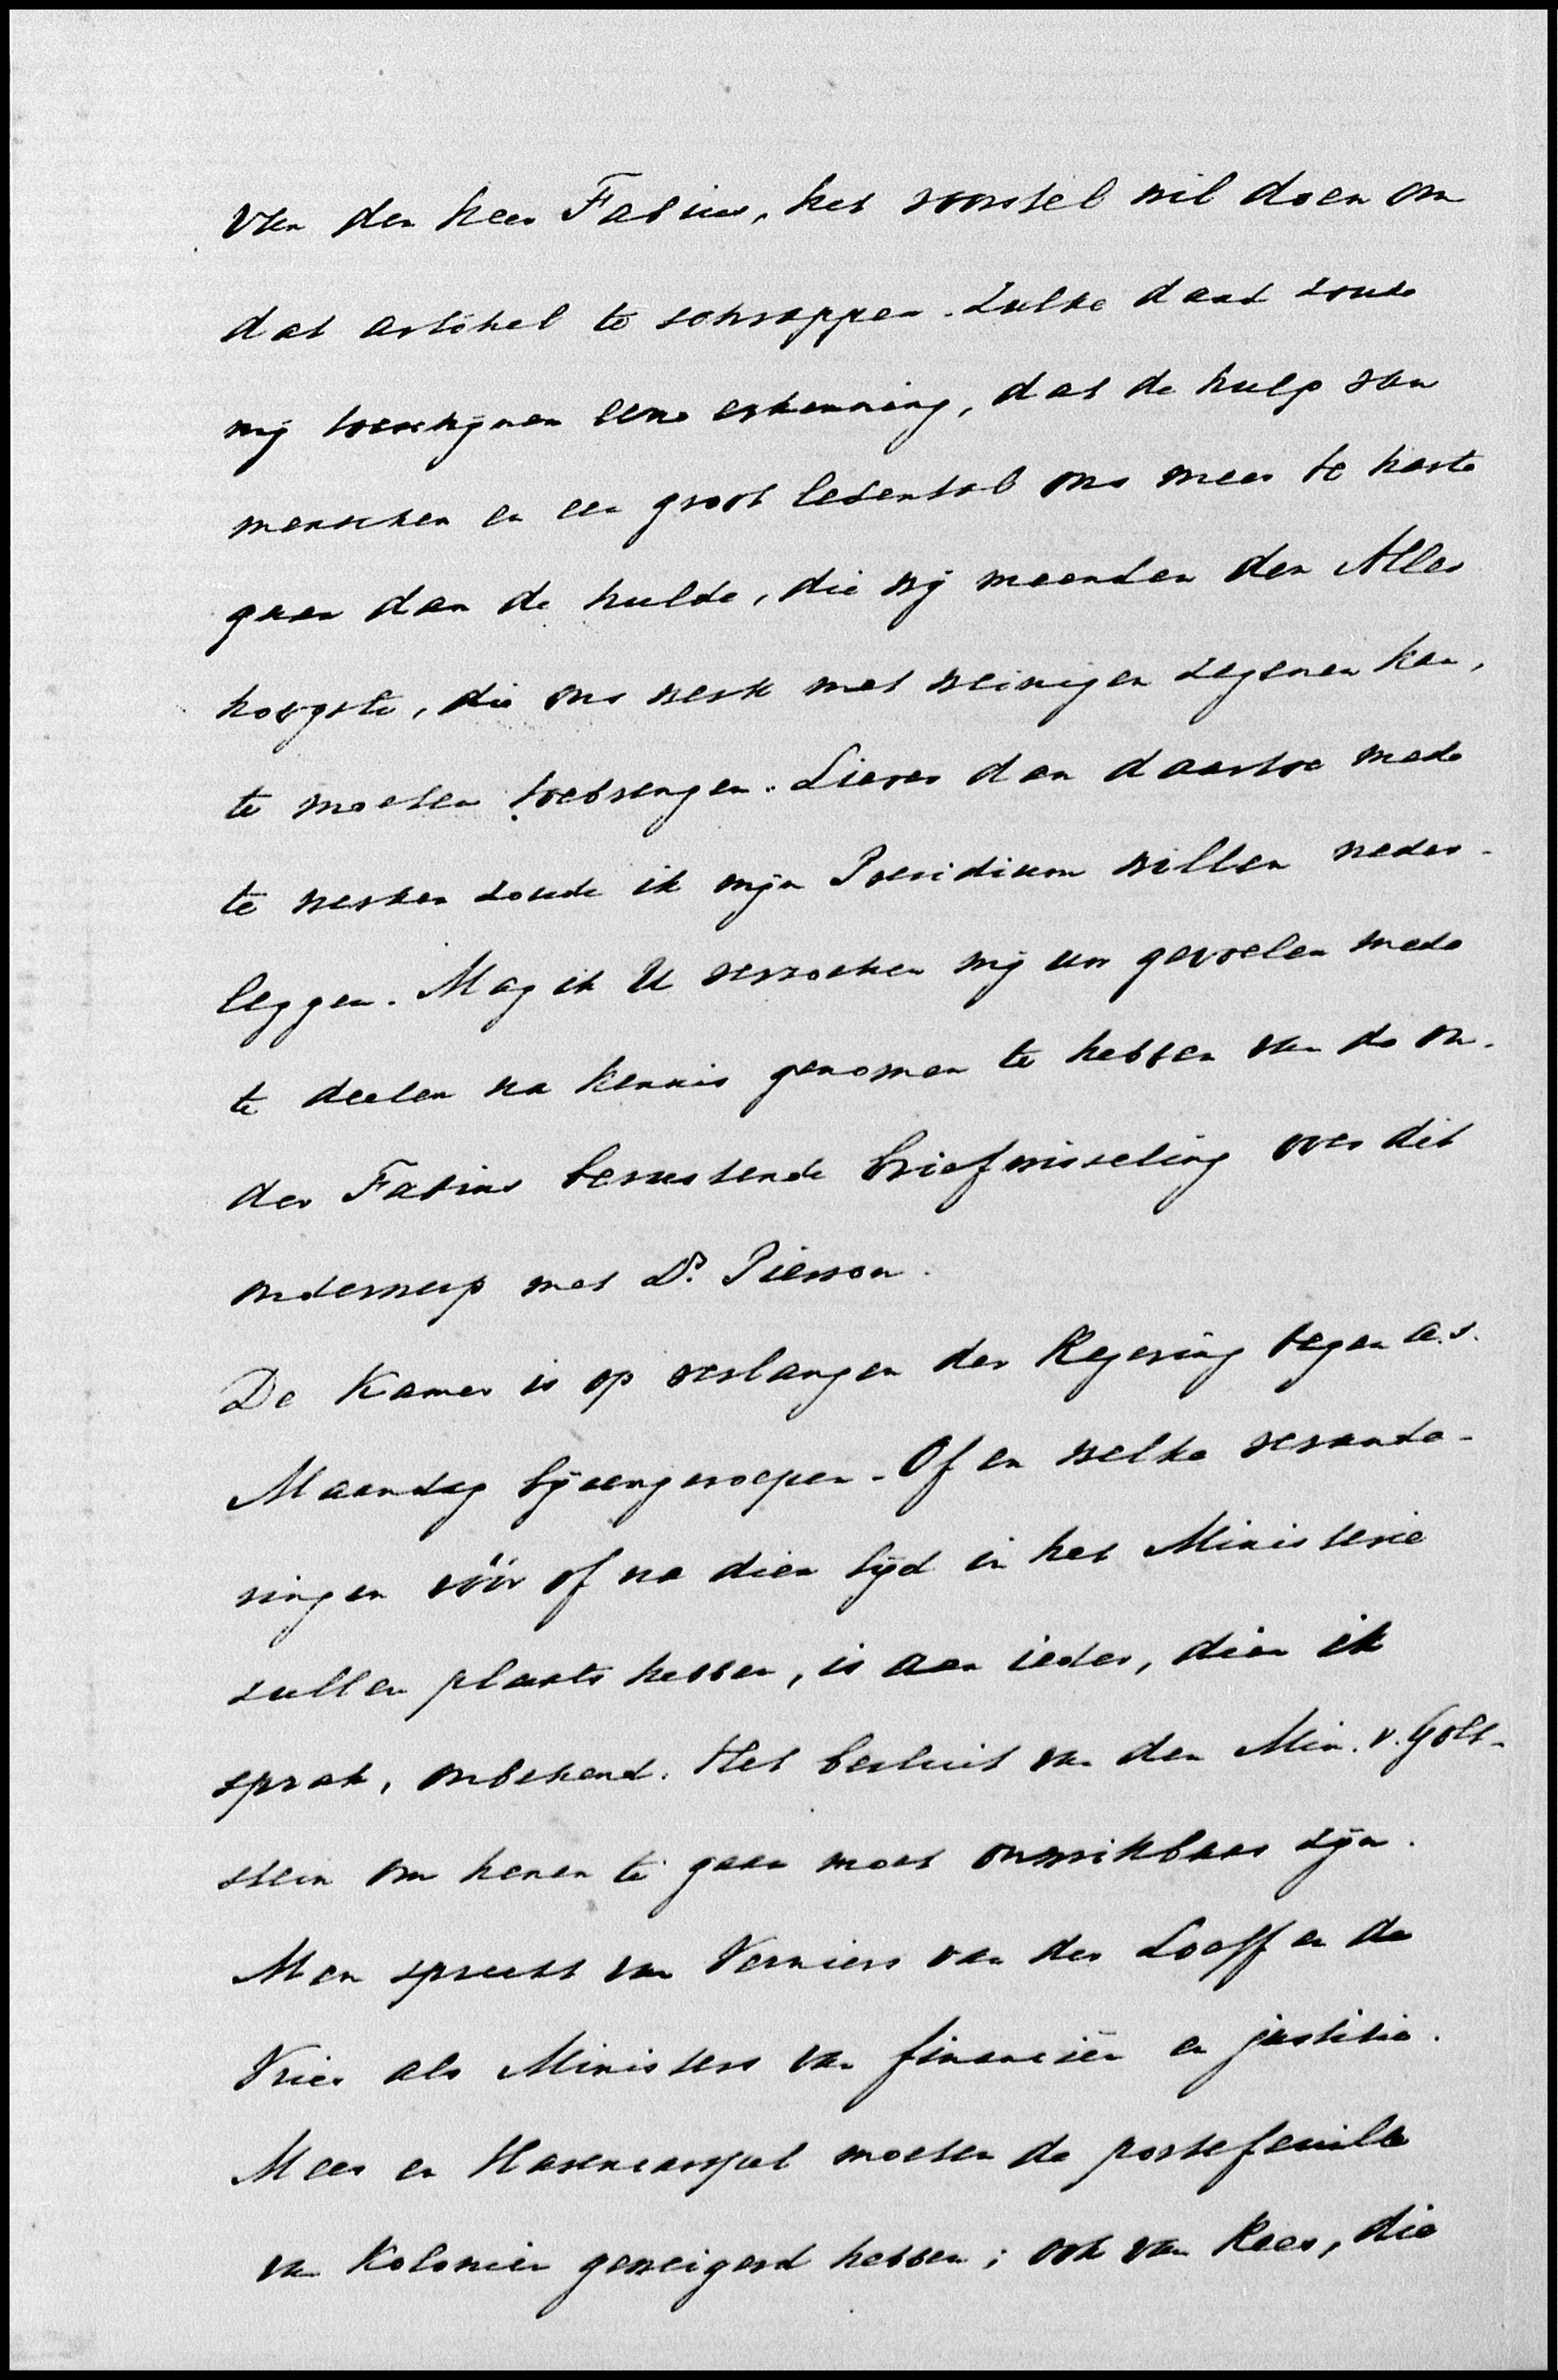 van den heer Fabius, het voorstel wil doen om
dat artikel te schrappen. Zulke daad zoude
mij toeschijnen eene erkenning, dat de hulp van
menschen en een groot ledental ons meer te harte
gaan dan de hulde, die wij meenden den Aller
hoogste, die ons werk met weinigen zegenen kan,
te moeten toebrengen. Liever dan daartoe mede
te werken zoude ik mijn Presidium willen neder-
leggen. Mag ik U verzoeken mij uw gevoelen mede
te deelen na kennis genomen te hebben van de on-
der Fabius berustende briefwisseling over dit
onderwerp met Ds. Pierson.
De Kamer is op verlangen der Regering tegen a.s.
Maandag bijeengeroepen. Of en welke verande-
ringen vóór of na dien tijd in het Ministerie
zullen plaats hebben, is aan ieder, dien ik
sprak, onbekend. Het besluit van den Min. v. Golt-
stein om henen te gaan moet onwrikbaar zijn.
Men spreekt van Verniers van der Loeff en de
Vries als Ministers van financiën en justitie.
Mees en Hasencarspel moeten de portefeuille
van Koloniën geweigerd hebben; ook van Rees, die